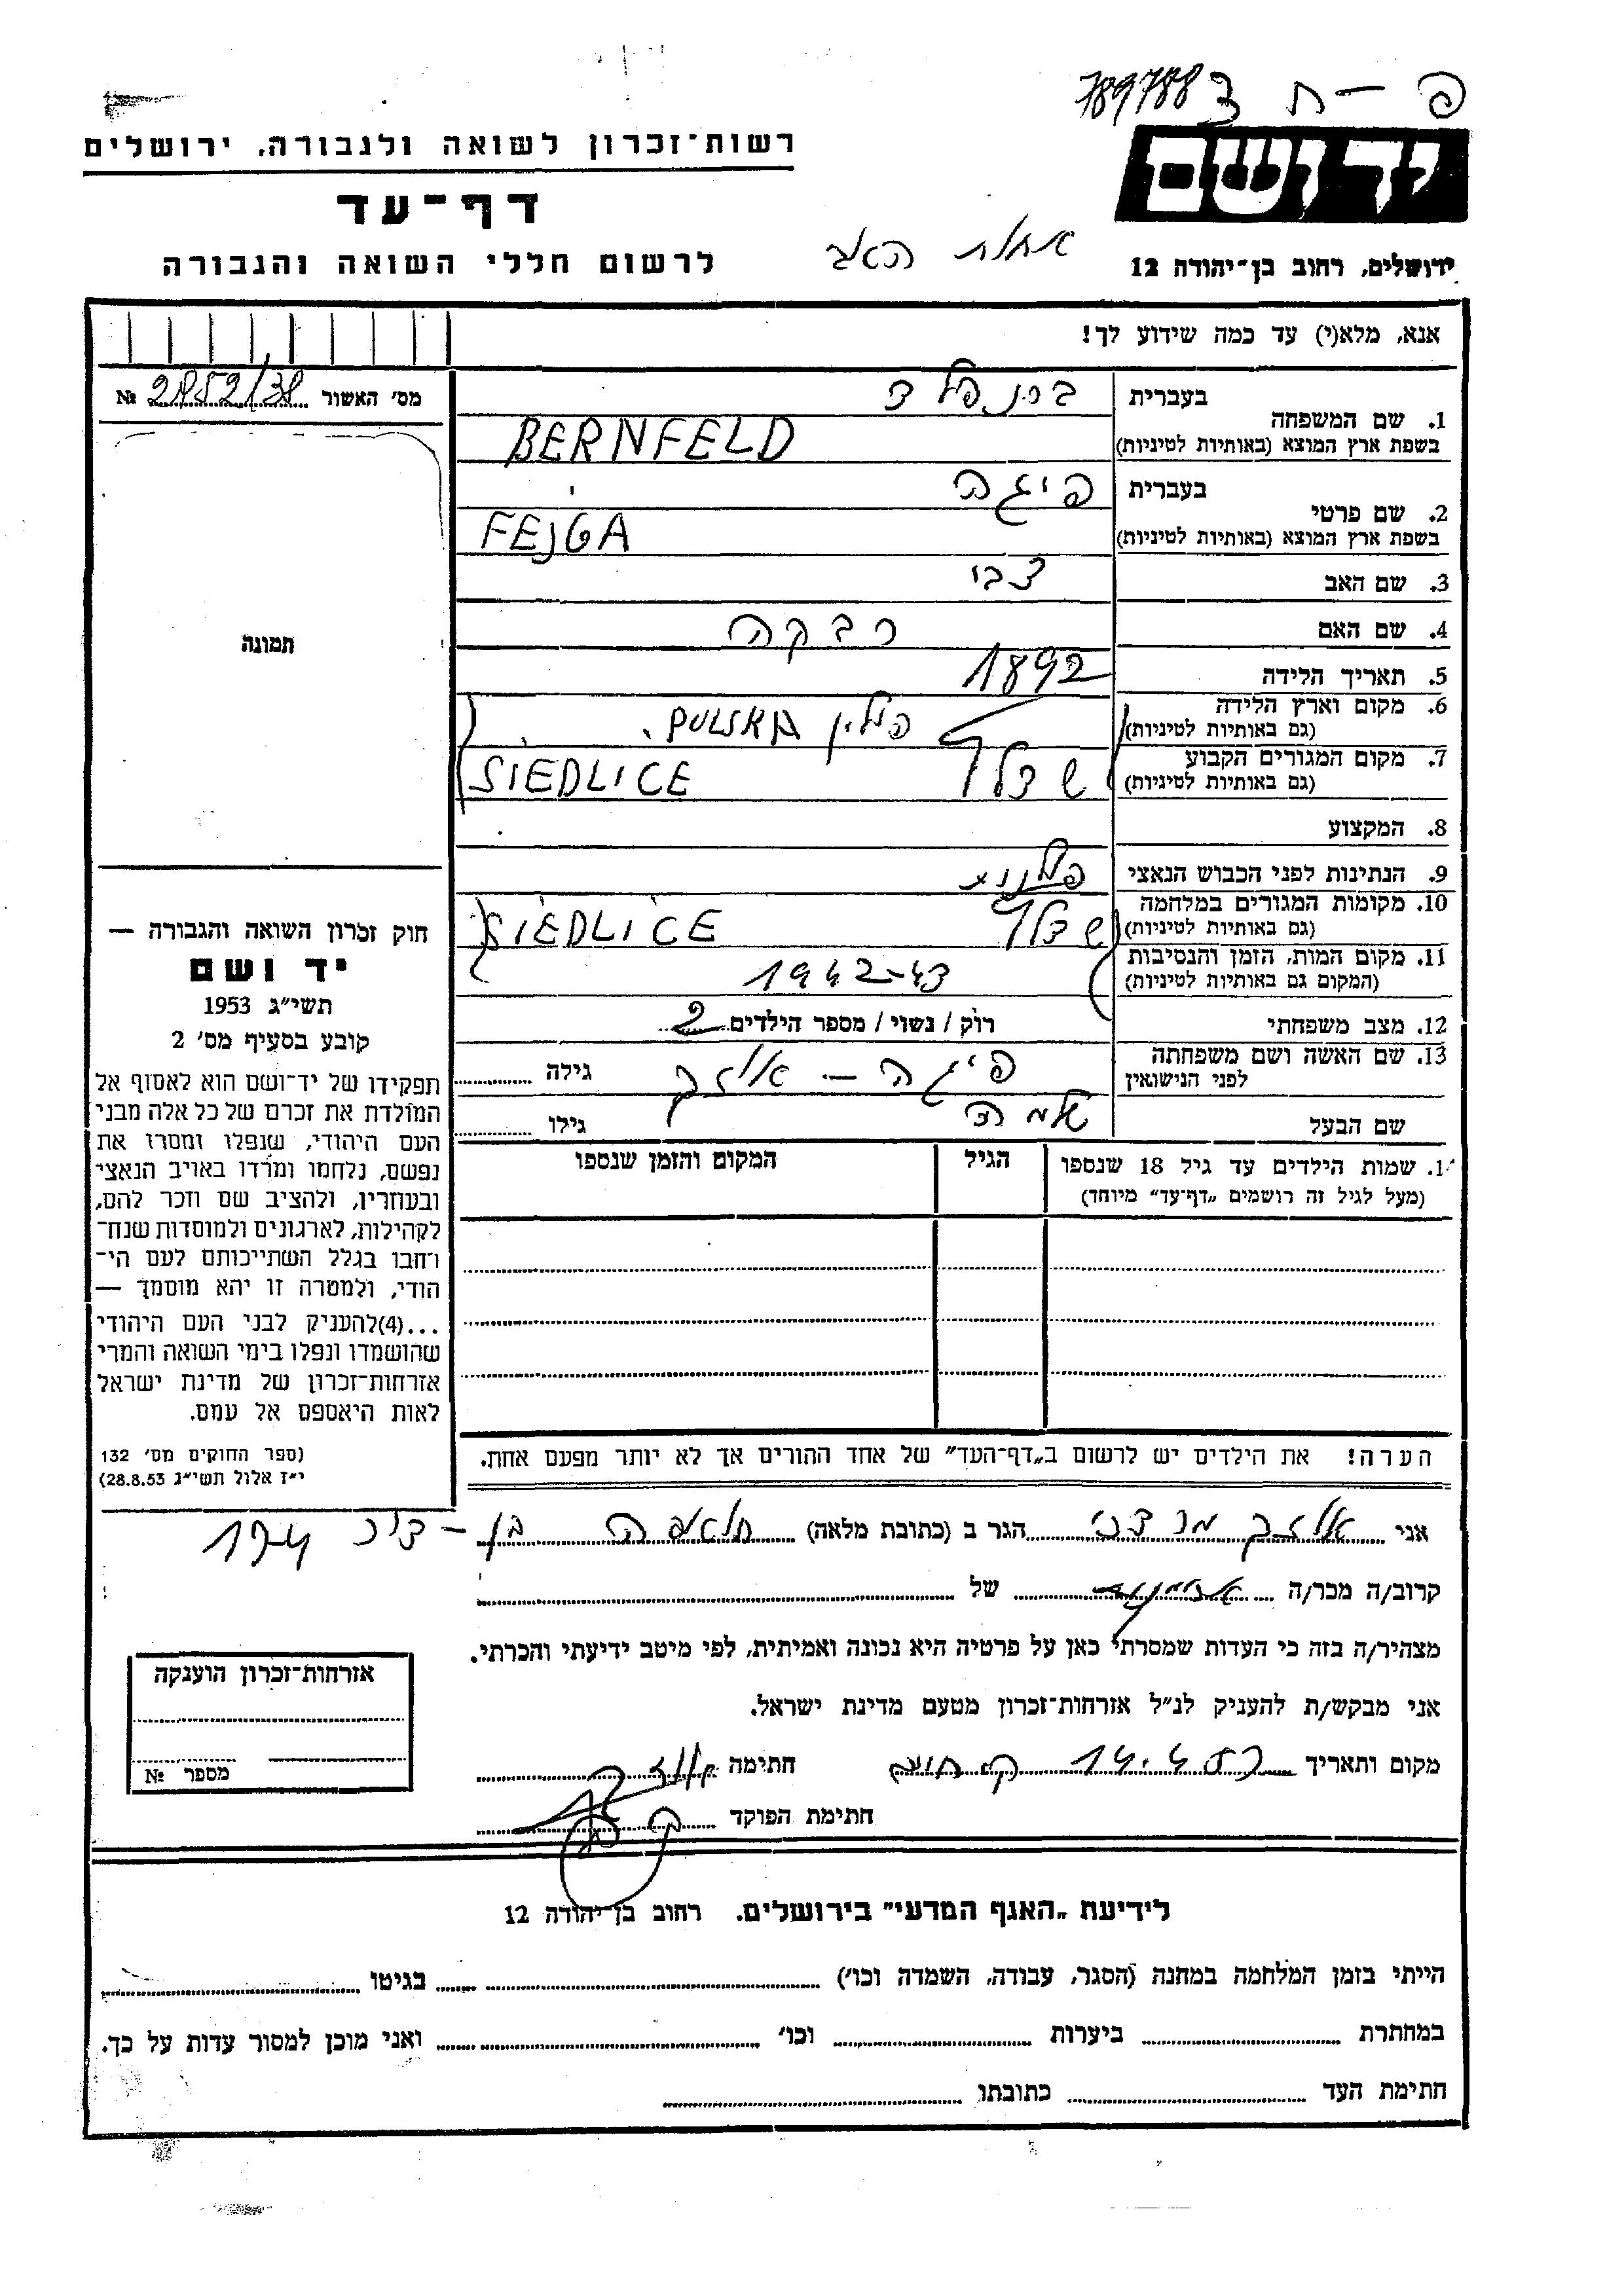 פ – ח צ 789788
יד ושם
רשות־זכרון לשואה ולגבורה, ירושלים
דף־עד
לרשום חללי השואה והגבורה
אחות האב
ירושלים, רחוב בן־יהודה 12
אנא, מלא(י) עד כמה שידוע לך!
מס׳ האשור 2852/38 №
תמונה
1. שם המשפחה בעברית ברנפלד
בשפת ארץ המוצא (באותיות לטיניות) BERNFELD
2. שם פרטי בעברית פיגה
בשפת ארץ המוצא (באותיות לטיניות) FEJGA
3. שם האב צבי
4. שם האם רבקה
5. תאריך הלידה 1892
6. מקום וארץ הלידה
(גם באותיות לטיניות) פולין POLSKA.
7. מקום המגורים הקבוע
(גם באותיות לטיניות) שדלץ SIEDLICE
8. המקצוע
9. הנתינות לפני הכבוש הנאצי פולנית
10. מקומות המגורים במלחמה
(גם באותיות לטיניות) שדלץ SIEDLICE
11. מקום המות, הזמן והנסיבות
(המקום גם באותיות לטיניות) 1942-43
12. מצב משפחתי רוק / נשוי / מספר הילדים 2
13. שם האשה ושם משפחתה
לפני הנישואין פיגה – גילה
שם הבעל שלמה גילו
14. שמות הילדים עד גיל 18 שנספו
(מעל לגיל זה רושמים „דף־עד״ מיוחד)
הגיל
המקום והזמן שנספו
הערה! את הילדים יש לרשום ב„דף־העד״ של אחד ההורים אך לא יותר מפעם אחת.
חוק זכרון השואה והגבורה —
יד ושם
תשי״ג 1953
קובע בסעיף מס׳ 2
תפקידו של יד־ושם הוא לאסוף אל
המולדת את זכרם של כל אלה מבני
העם היהודי, שנפלו ומסרו את
נפשם, נלחמו ומרדו באויב הנאצי
ובעוזריו, ולהציב שם וזכר להם,
לקהילות, לארגונים ולמוסדות שנח־
רחבו בגלל השתייכותם לעם הי־
הודי, ולמטרה זו יהא מוסמך —
...(4)להעניק לבני העם היהודי
שהושמדו ונפלו בימי השואה והמרי
אזרחות־זכרון של מדינת ישראל
לאות היאספם אל עמם.
(ספר החוקים מס׳ 132
י״ז אלול תשי״ג 28.8.53)
אני מרדכי הגר ב (כתובת מלאה) חיפה בן – דור 194
קרוב/ה מכר/ה של
מצהיר/ה בזה כי העדות שמסרתי כאן על פרטיה היא נכונה ואמיתית, לפי מיטב ידיעתי והכרתי.
אני מבקש/ת להעניק לנ״ל אזרחות־זכרון מטעם מדינת ישראל.
מקום ותאריך 14.4.57 חתימה
חתימת הפוקד
אזרחות־זכרון הוענקה
מספר №
לידיעת „האגף המדעי״ בירושלים. רחוב בן־יהודה 12
הייתי בזמן המלחמה במחנה (הסגר, עבודה, השמדה וכו׳) בגיטו
במחתרת ביערות וכו׳ ואני מוכן למסור עדות על כך.
חתימת העד כתובתו